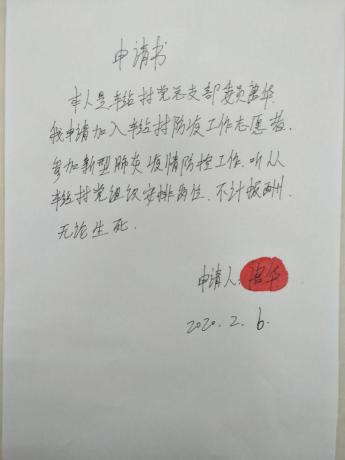 申请书
本人是丰给村党总支部委员唐华.
我申请加入丰给村防疫工作志愿者.
参加新型肺炎疫情防控工作.听从
丰给村党组织安排岗位.不计报酬.
无论生死.
申请人:唐华
2020.2.6.